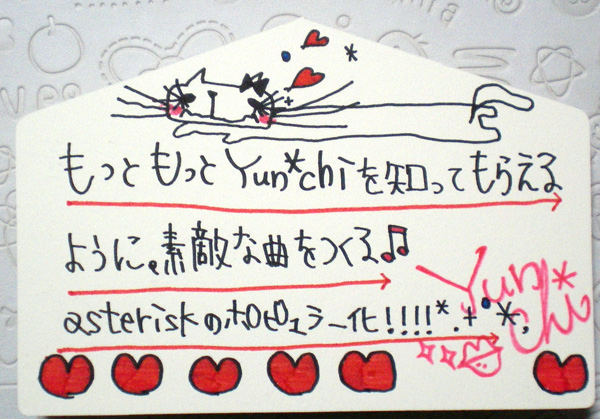 もっともっとYun*chiを知ってもらえる
ように。素敵な曲をつくる♫
asteriskのポピュラー化!!!!*.+*.
Yun*chi